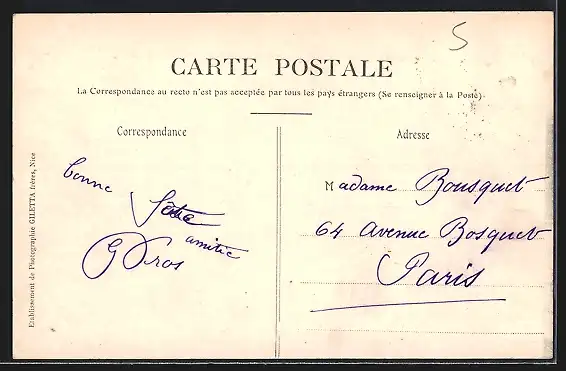 5
CARTE POSTALE
La Correspondance au recto n'est pas acceptée par tous les pays étrangers (Se renseigner à la Poste)
Correspondance
Adresse
bonne
fête
amitié
G Gros
Madame Bousquet
64 Avenue Bosquet
Paris
Etablissement de Photographie GILETTA frères, Nice